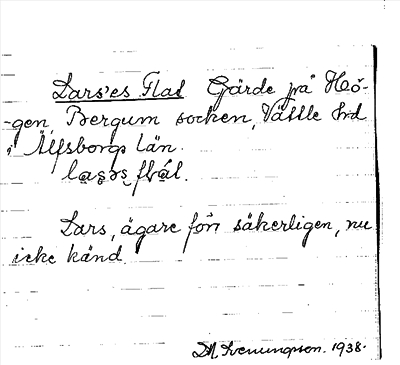 Lars'es Flat Gärde på Hö-
-gen Bergum socken, Vättle hrd
i Älfsborgs län.
Lars, ägare förr säkerligen, nu
icke känd.
1938.